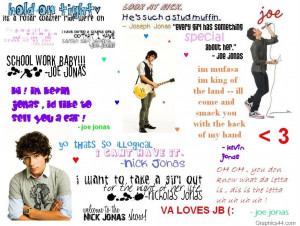 hold on tight
its a roller coaster ride we're on
LOOK AT NICK.
He's such a stud muffin.
- Joseph Jonas
"EVERY GIRL HAS SOMETHING
special
ABOUT HER."
- Joe Jonas
joe
SCHOOL WORK BABY!!!
-JOE JONAS
Hi ! im kevin
jonas , id like to
sell you a car !
- joe jonas
im mufasa
im king of
the land -- ill
come and
smack you
with the back
of my hand
- kevin
jonas
< 3
yo thats so illogical
i CANT HAVE IT.
-nick jonas
i want to take a girl out
for the night of her life
-Nickolas Jonas
welcome to the
NICK JONAS show!
OH OH .. you don
know what da letta
is , dis is the letta
uh uh uh uh !
- joe jonas
VA LOVES JB (:
Graphics44.com